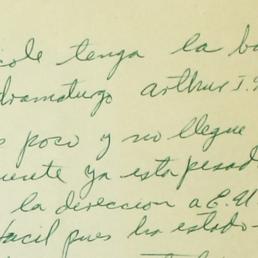 cole tenga la bo
dramaturgo Arthur I.
poco y no llegue
uente ya esta pesad
la direccion a E.U.
facil pues ha estado